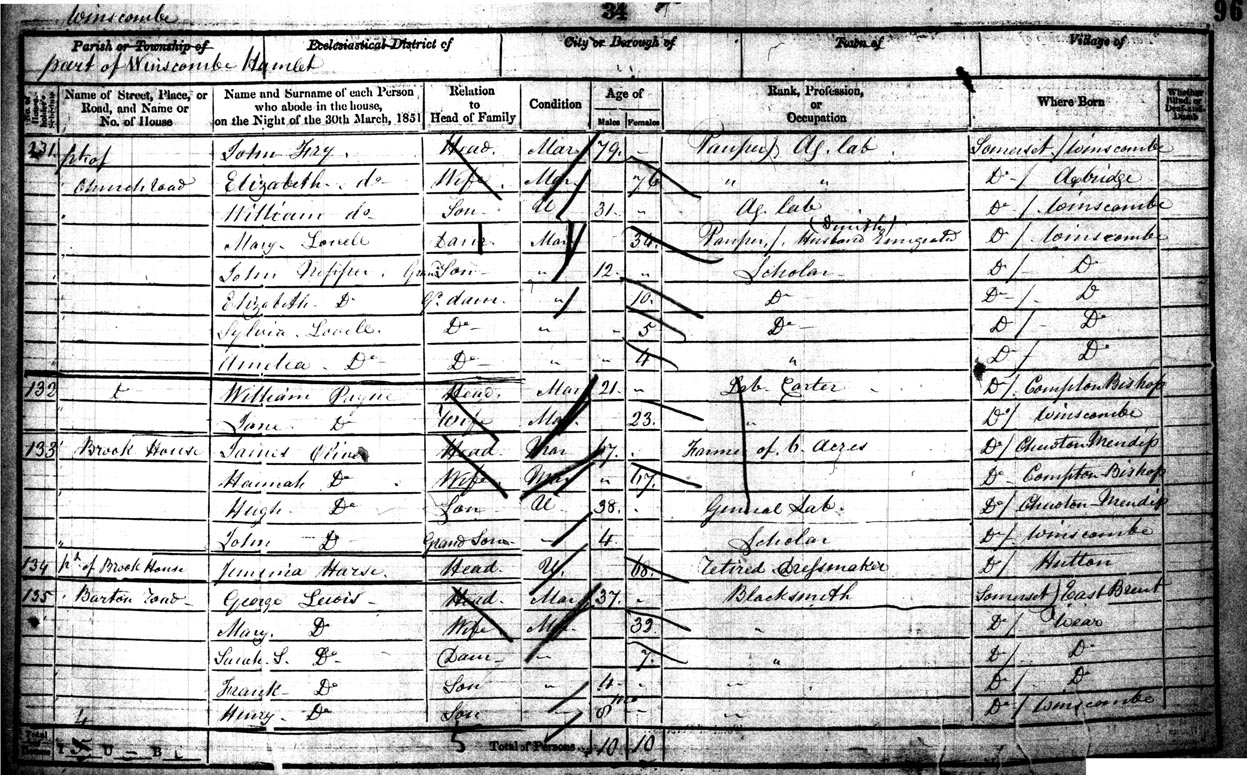 Winscombe 34 96
Parish or Township of Ecclesiastical District of City or Borough of Town of Village of
part of Winscombe Hamlet
Name of Street, Place, or Road, and Name or No. of House Name and Surname of each Person who abode in the house, on the Night of the 30th March, 1851 Relation to Head of Family Condition Age of Males Females Rank, Profession, or Occupation Where Born Whether Blind, or Deaf-and-Dumb
131 pt of John Fry Head Mar 79 Pauper / Ag. lab Somerset / Winscombe
Church road Elizabeth do Wife Mar 76 " " Do / Axbridge
William do Son U 31 Ag. lab Do / Winscombe
Mary Lovell Daur Mar 34 Pauper / Husband Emigrated (Smith) Do / Winscombe
John Grand Son " 12 Scholar Do / Do
Elizabeth Do Gd daur " 10 Do Do / Do
Sylvia Lovell Do " 5 Do Do / Do
Amelia Do Do " 4 " Do / Do
132 William Payne Head Mar 21 Carter Do / Compton Bishop
Jane Do Wife Mar 23 " Do / Winscombe
133 Brook House James Oliver Head Mar 67 Farmer of 6 Acres Do / Chewton Mendip
Hannah Do Wife Mar 67 Do Compton Bishop
Hugh Do Son U 38 General Lab. Do / Chewton Mendip
John Do Grand Son 4 Scholar Do / Winscombe
134 pt of Brook House Jemima Harse Head U 68 Retired Dressmaker Do / Hutton
135 Barton road George Lewis Head Mar 37 Blacksmith Somerset / East Brent
Mary Do Wife Mar 39 " Do / Wear
Sarah S. Do Daur " 7 " Do / Do
Frank Do Son " 4 " Do / Do
4 Henry Do Son 8 mo " Do / Winscombe
5 Total of Persons 10 10